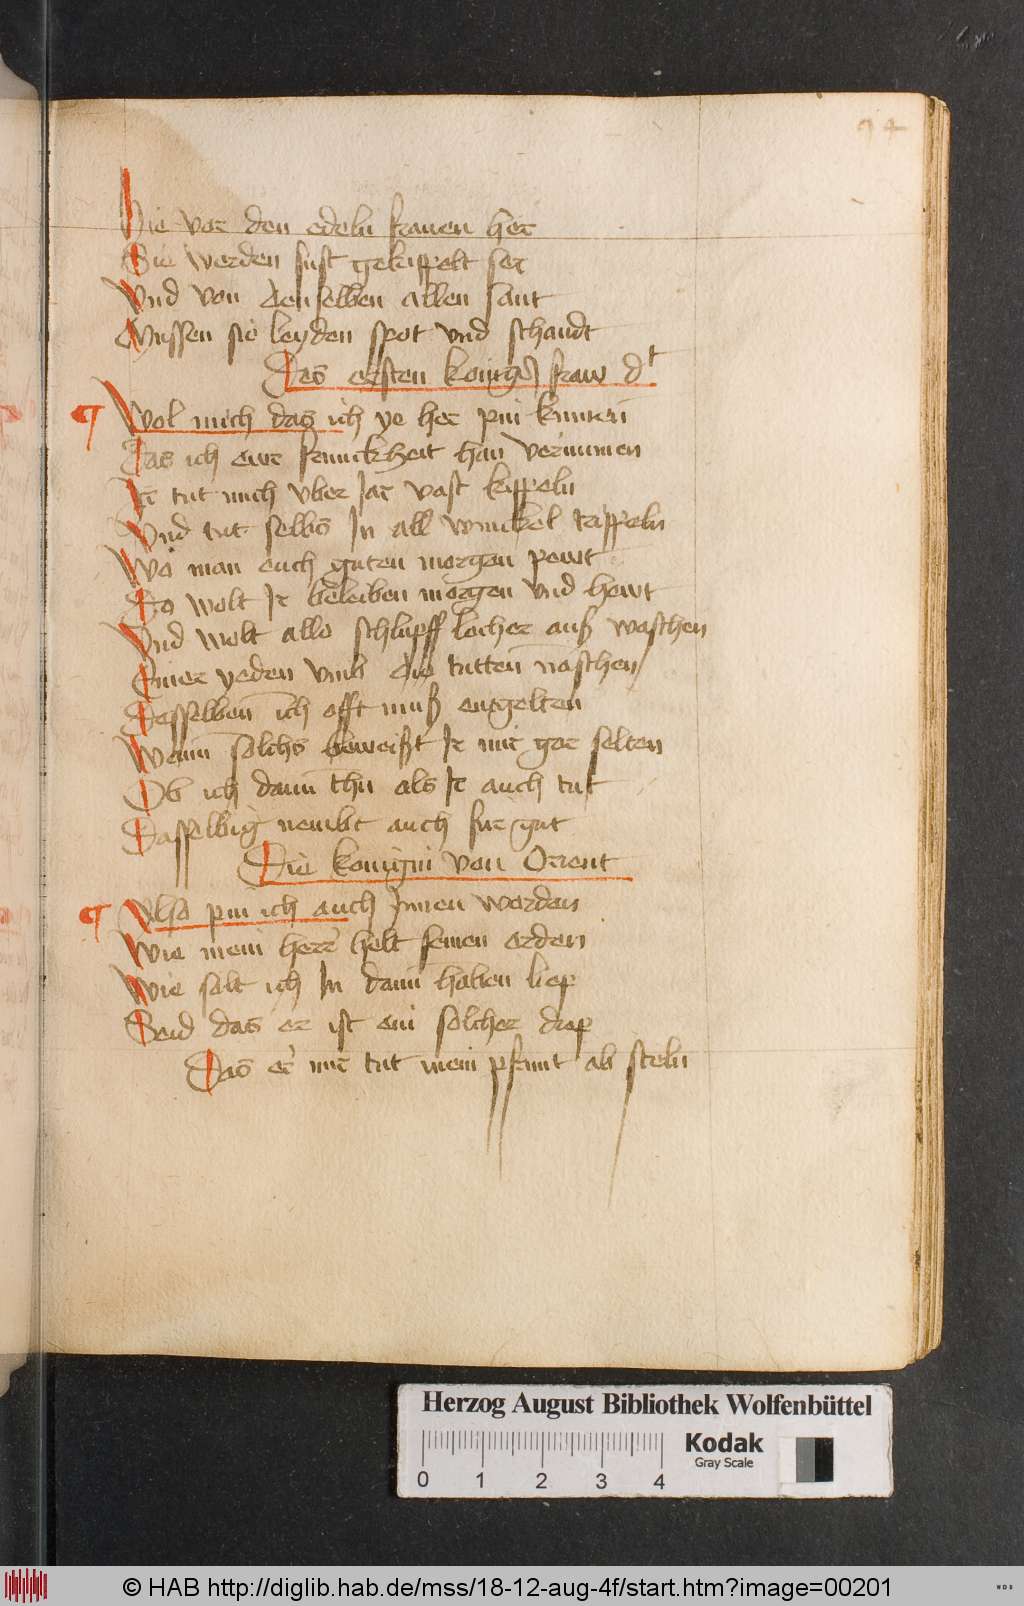 94
Hie vor den edeln frauen her
Sie werden sust gekippelt ser
Vnd von denselben allen sant
Mussen sie leyden spot vnd schandt
Des ersten konigs fraw dt
Wol mich das ich ye her pin kumen
Das ich ewr frumckheit han vernumen
Ir tut mich vber Jar vast kippeln
Vnd tut selbs In all winckel trippeln
Wo man euch guten morgen pewt
Do wolt Ir beleiben morgen vnd hewt
Vnd wolt alle schlupff locher auß waschen
Einer yeden vmb die tutten naschen
Desselben ich offt muß engelten
Wann solchs beweißt Ir mir gar selten
Ob ich dann thu als Ir auch tut
Dasselbig nembt auch fur gut
Die konigin von Orient
Also pin ich auch Innen worden
Wie mein herr helt seinen orden
Wie solt ich In dann haben liep
Seid das er ist ein solcher diep
Das er mir tut mein pfrunt ab steln
Herzog August Bibliothek Wolfenbüttel
Kodak
Gray Scale
0 1 2 3 4
© HAB http://diglib.hab.de/mss/18-12-aug-4f/start.htm?image=00201